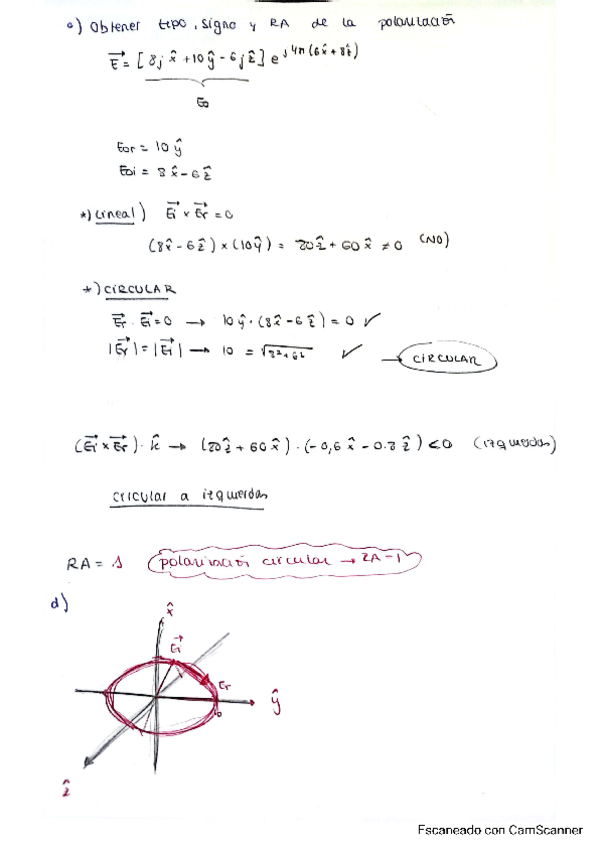 c) Obtener tipo, signo y RA de la polarización
E⃗ = [8j x̂ + 10 ŷ - 6j ẑ] e^j4π(6x̂ + 8ẑ)
E0
E0r = 10 ŷ
E0i = 8 x̂ - 6 ẑ
*) Lineal) E⃗i × E⃗r = 0
(8x̂ - 6ẑ) × (10ŷ) = 80ẑ + 60 x̂ ≠ 0 (NO)
*) CIRCULAR
E⃗r · E⃗i = 0 → 10 ŷ · (8x̂ - 6ẑ) = 0 ✓
|E⃗r| = |E⃗i| → 10 = √8²+6² ✓ → CIRCULAR
(E⃗i × E⃗r) · k̂ → (80ẑ + 60 x̂) · (-0,6 x̂ - 0.8 ẑ) < 0 (izquierdas)
circular a izquierdas
RA = 1 polarización circular → RA = 1
d)
x̂
E⃗i
Er
ŷ
ẑ
Escaneado con CamScanner